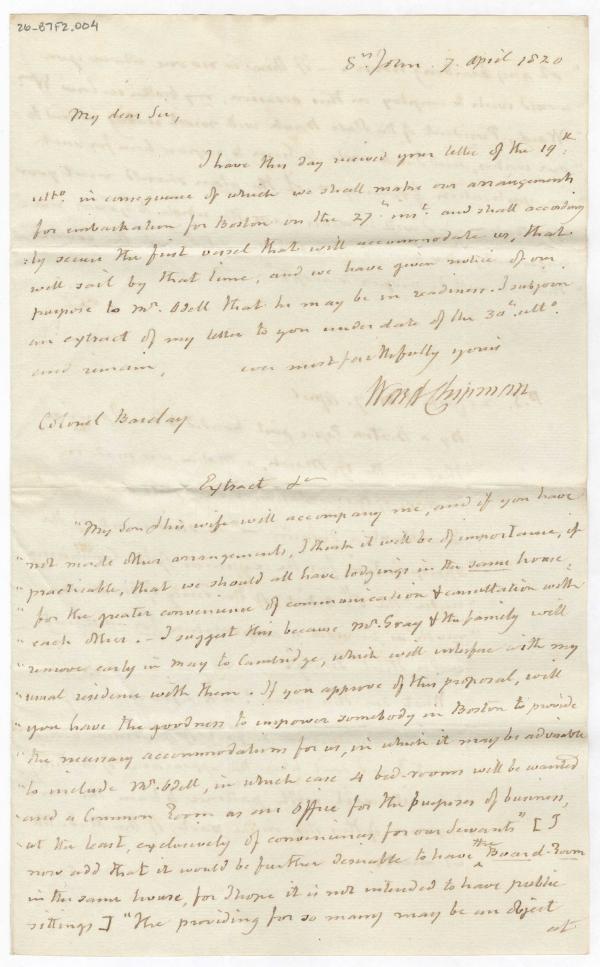 26-B7F2.004
Sᵗ John. 7. April 1820
My dear Sir,
I have this day received your letter of the 19ᵗʰ
ultᵒ. in consequence of which we shall make our arrangements
for embarkation for Boston on the 27ᵗʰ insᵗ. and shall according
:ly secure the first vessel that will accommodate us, that
will sail by that time, and we have given notice of our
purpose to Mʳ. Odell that he may be in readiness. I subjoin
an extract of my letter to you under date of the 30ᵗʰ. ultᵒ.
and remain, ever most faithfully yours
Ward Chipman
Colonel Barclay
Extract &c
"My Son & his wife will accompany me, and if you have
"not made other arrangements, I think it will be of importance, if
"practicable, that we should all have lodgings in the same house,
"for the greater convenience of communication & consultation with
"each other. – I suggest this because Mʳ. Gray & the family will
"remove early in May to Cambridge, which will interfere with my
"usual residence with them. If you approve of this proposal, will
"you have the goodness to impower somebody in Boston to provide
"the necessary accommodations for us, in which it may be advisable
"to include Mʳ. Odell, in which case 4 bed-rooms will be wanted
"and a Common Room as an office for the purposes of business,
"at the least, exclusively of conveniences for our Servants" [I
now add that it would be further desirable to have the Board-Room
in the same house, for I hope it is not intended to have public
sittings] "The providing for so many may be an object